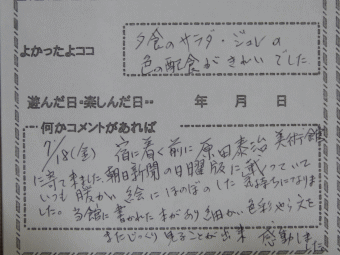 よかったよココ
夕食のサラダ・ジュレの
色の配食がきれいでした
遊んだ日・楽しんだ日・・ 年 月 日
何かコメントがあれば
7/18(金) 宿に着く前に原田泰治美術館
に寄て来ました。朝日新聞の日曜版に載っていて
いつも暖かい絵にほのぼのした気持ちになりま
した。当館に書かれた本があり細かい色彩やら文を
またじっくり見ることが出来 感動しました